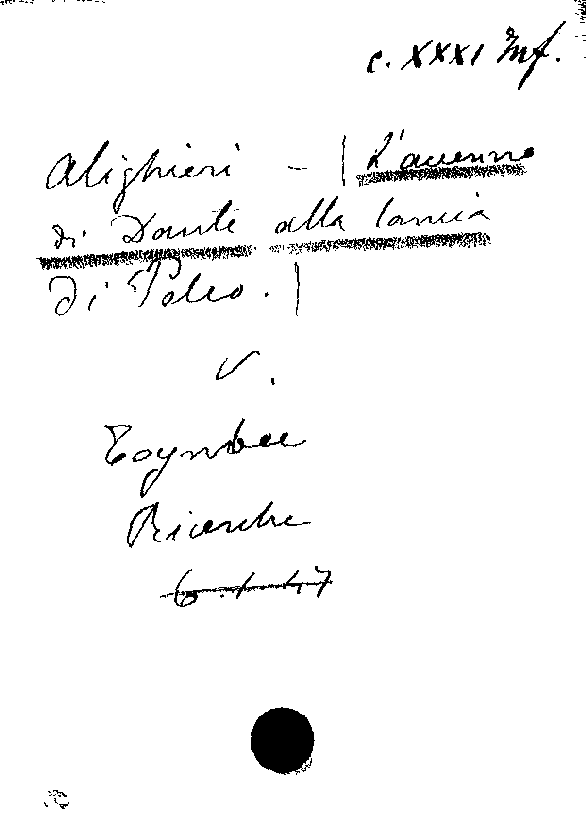 c. XXXI Inf.
Alighieri - | L'accenno
di Dante alla lancia
di Peleo. |
v.
Toynbee
Ricerche
6.1.47